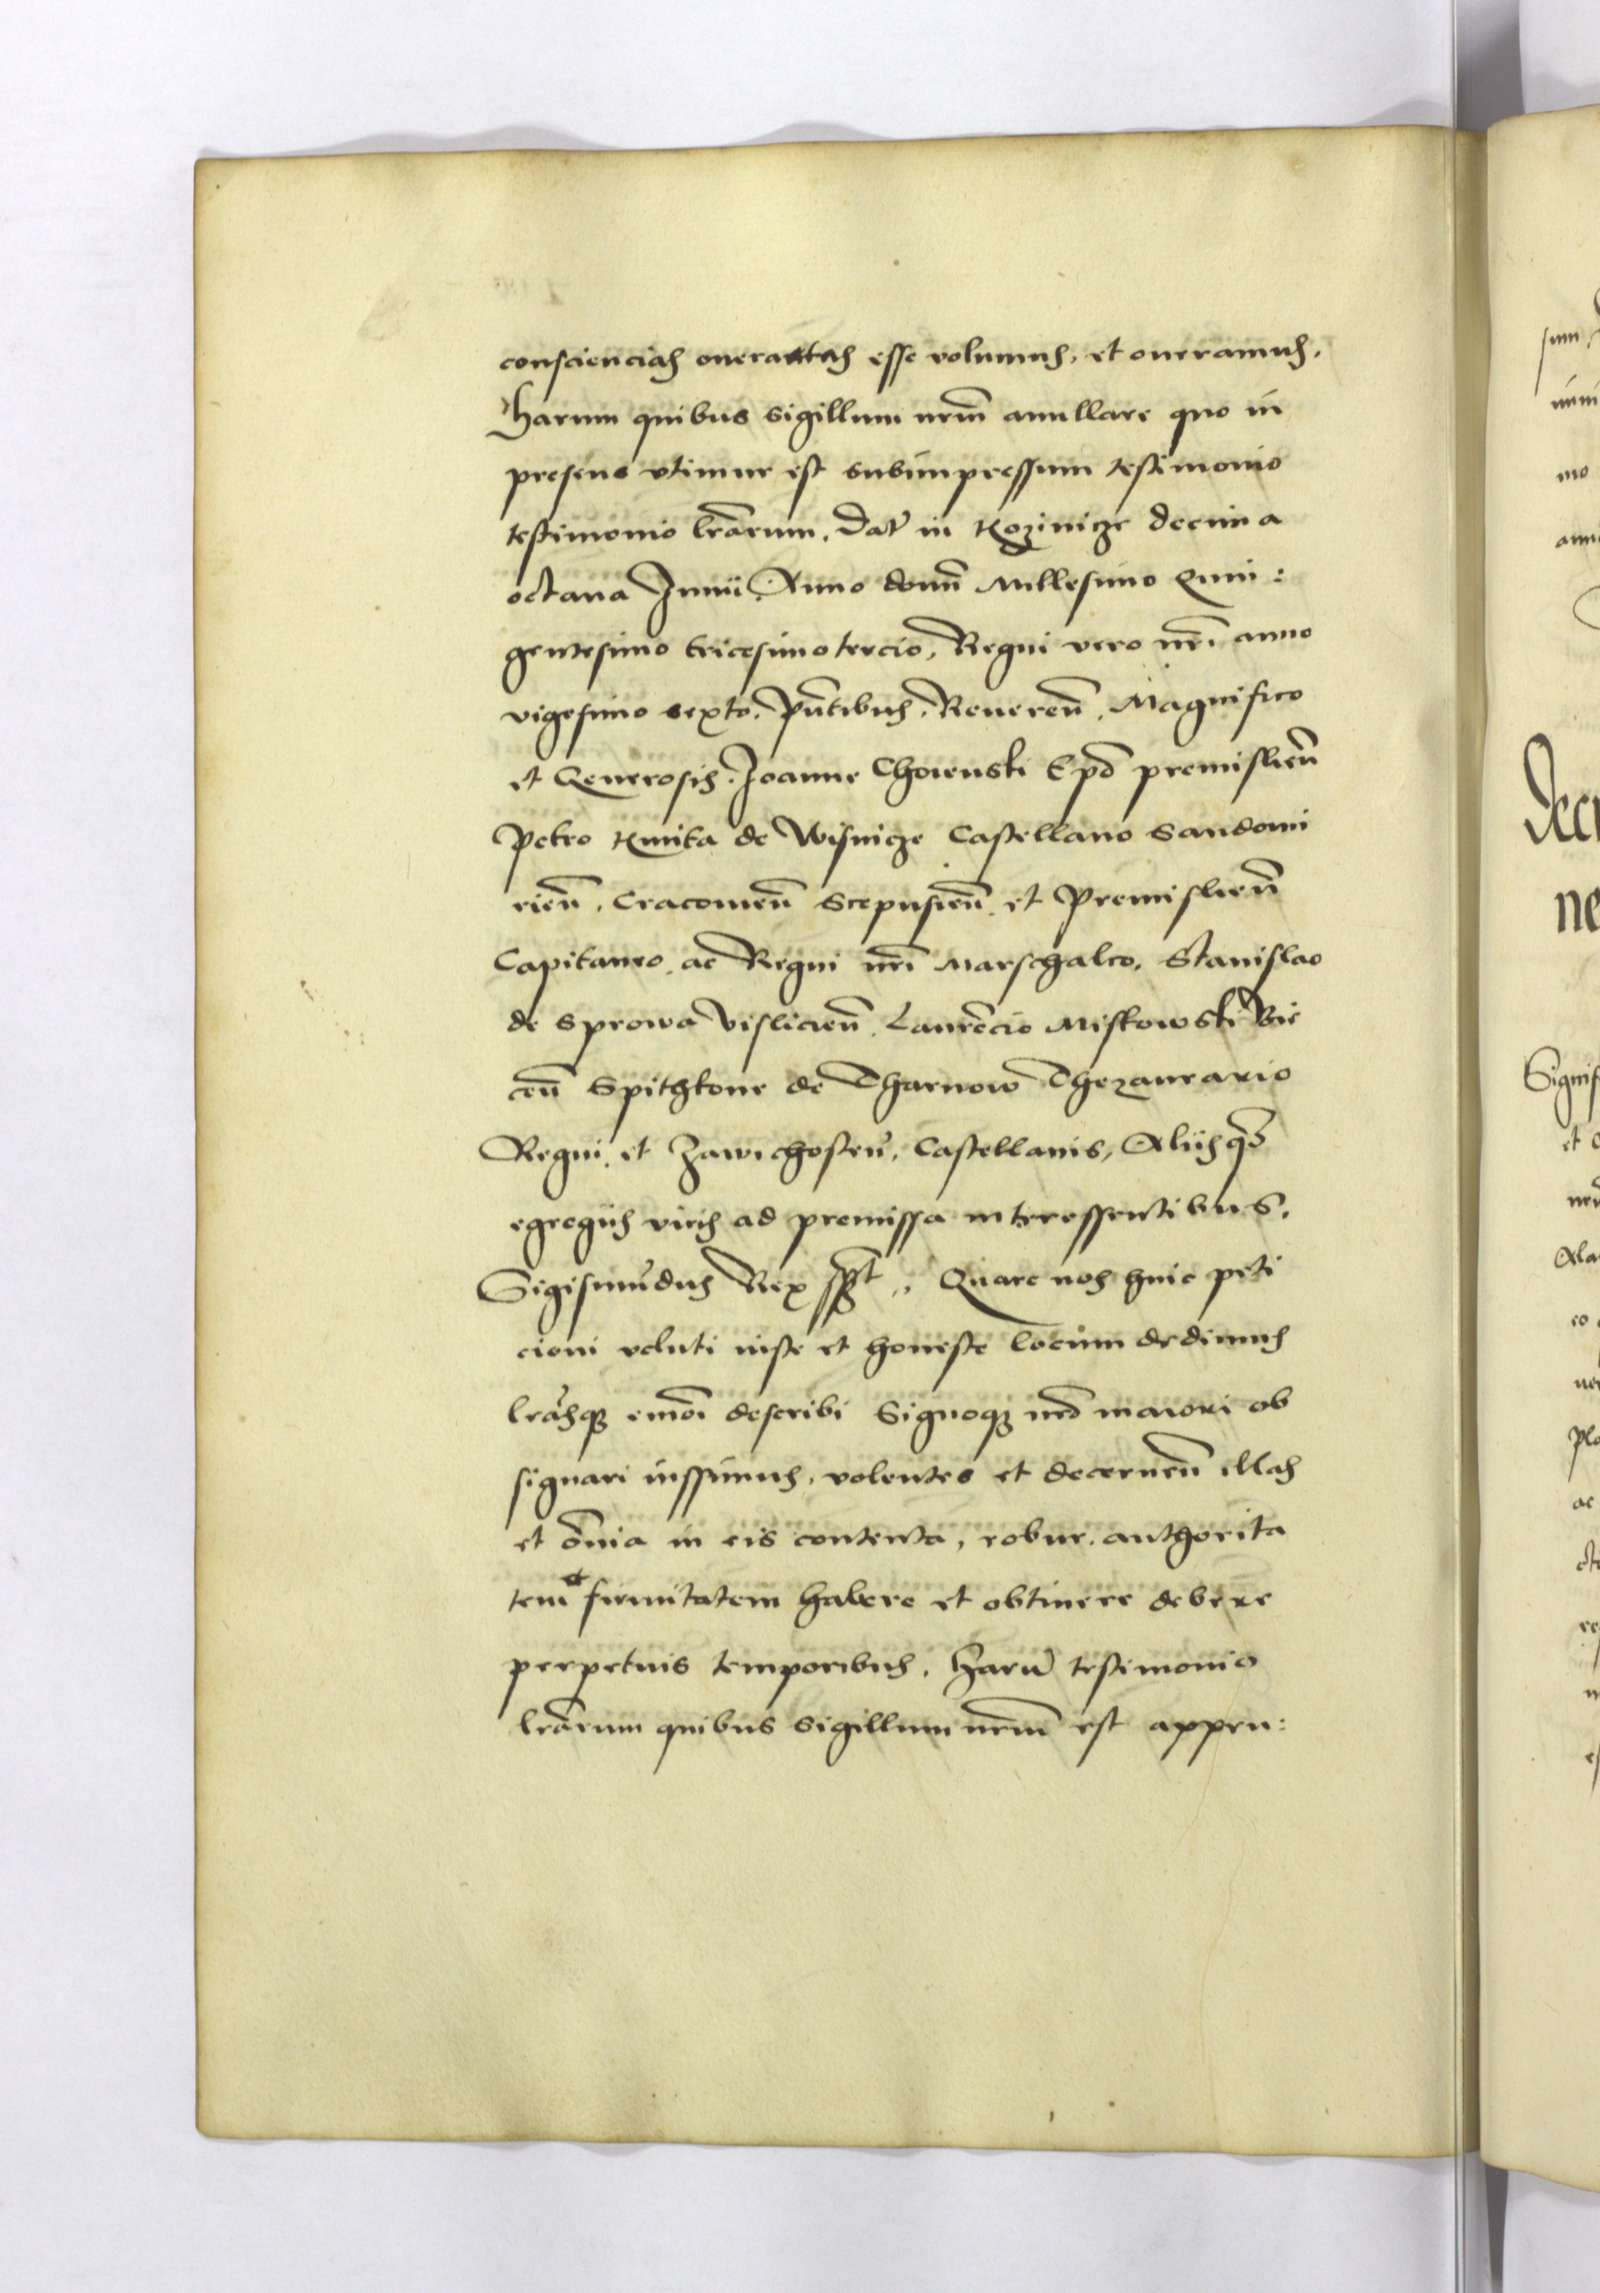 consciencias oneratas esse volumus, et oneramus.
Harum quibus sigillum nrm̄ anullare quo in
presens vtimur est subimpressum testimonio
testimonio lrārum. Dat̄ in Kozinicze decima
octaua Junii. Anno domī Millesimo Quin:
gentesimo tricesimo tercio, Regni vero nrī anno
vigesimo sexto. Pn̄tibus. Reueren̄. Magnifico
et Generosis. Joanne Choienski Ep̄o premislien̄
Petro Kmita de Wisnicze Castellano Sandomi
rien̄. Cracouien̄ Scepusien̄ et Premislien̄
Capitaneo. ac Regni nrī Marschalco, Stanislao
de Sprowa Vislicien̄. Laurēcio Miskowski Bie
cen̄ Spithkone de Tharnow Thezaurario
Regni. et Zawichosten̄, Castellanis, Aliisq₃
egregiis viris ad premissa interessentibus.
Sigismūdus Rex sp̄st .. Quare nos huic peti
cioni veluti iuste et honeste locum dedimus
lrāsq₃ em̄oī describi Signoq₃ nrō maiori ob
signari iussimus, volentes et decernen̄ illas
et ōnia in eis contenta, robur. authorita
tem et firmitatem habere et obtinere debere
perpetuis temporibus. Harū testimonio
lrārum quibus sigillum nrm̄ est appen: